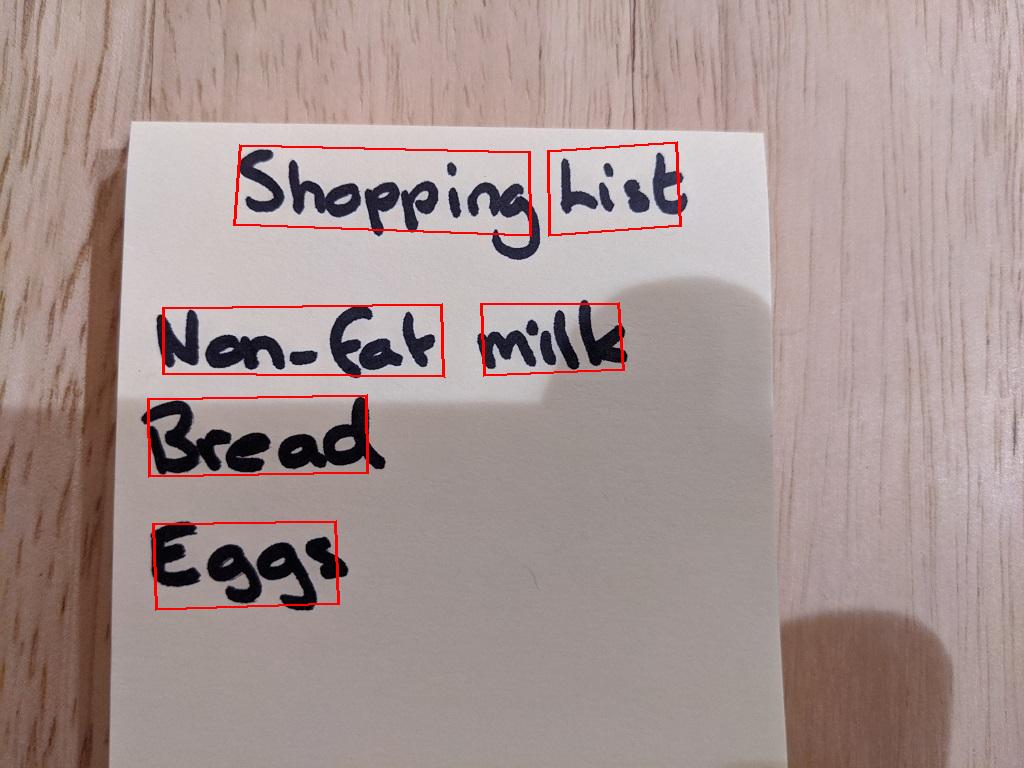 Shopping List
Non-Fat milk
Bread
Eggs